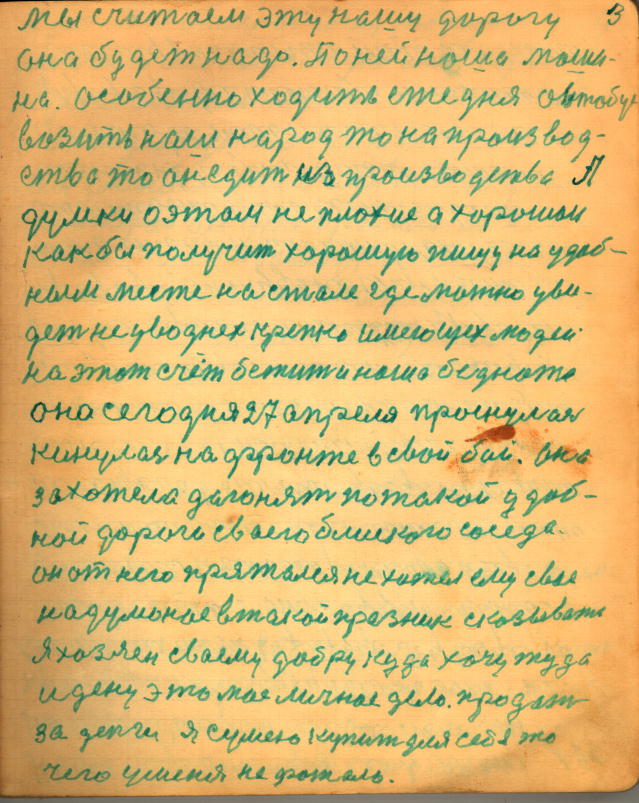 мы считаем эту нашу дорогу 3
она будет надо. По ней наша маши-
на. особенно ходить стедня овтобус
возить наш народ то на производ-
ства то он едит из производства А
думки о этом не плохие а хорошаи
как бы получит хорошую пищу на удоб-
ным месте на стале гдеможно уви-
дет не уводнех крепко имеющех людей
на этот счёт бежит и наша беднота
она сегодня 27 апреля проснулая
кинулая на фронте в свой бой. она
захотела дагонят по такой удоб-
ной дороги сваего близкого соседа.
он от него прятался не хотел ему свае
надуманое в такой празник сказыват
я хозяен сваему добру куда хочу туда
и дену это мае личное дело. продат
за денги я сумею купит для себя то
чего у меня не фоталь.